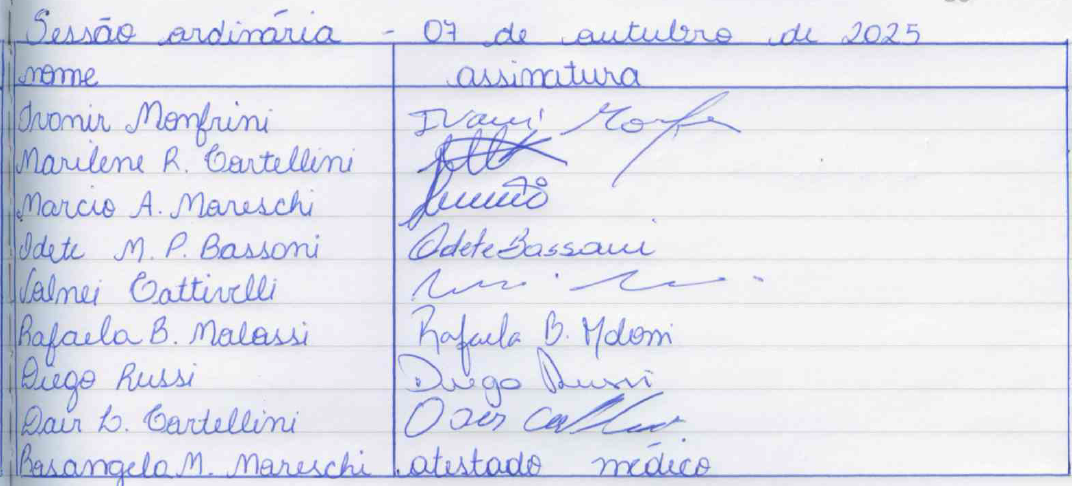 Sessão ordinária - 07 de outubro de 2025
nome assinatura
Ivonir Monfrini Ivani
Marilene R. Cartellini
Marcio A. Mareschi
Odete M. P. Bassoni Odete Bassani
Valnei Cattivelli
Rafaela B. Malossi Rafaela B.
Diego Russi Diego Russi
Dair L. Cartellini
Rosangela M. Mareschi atestado médico